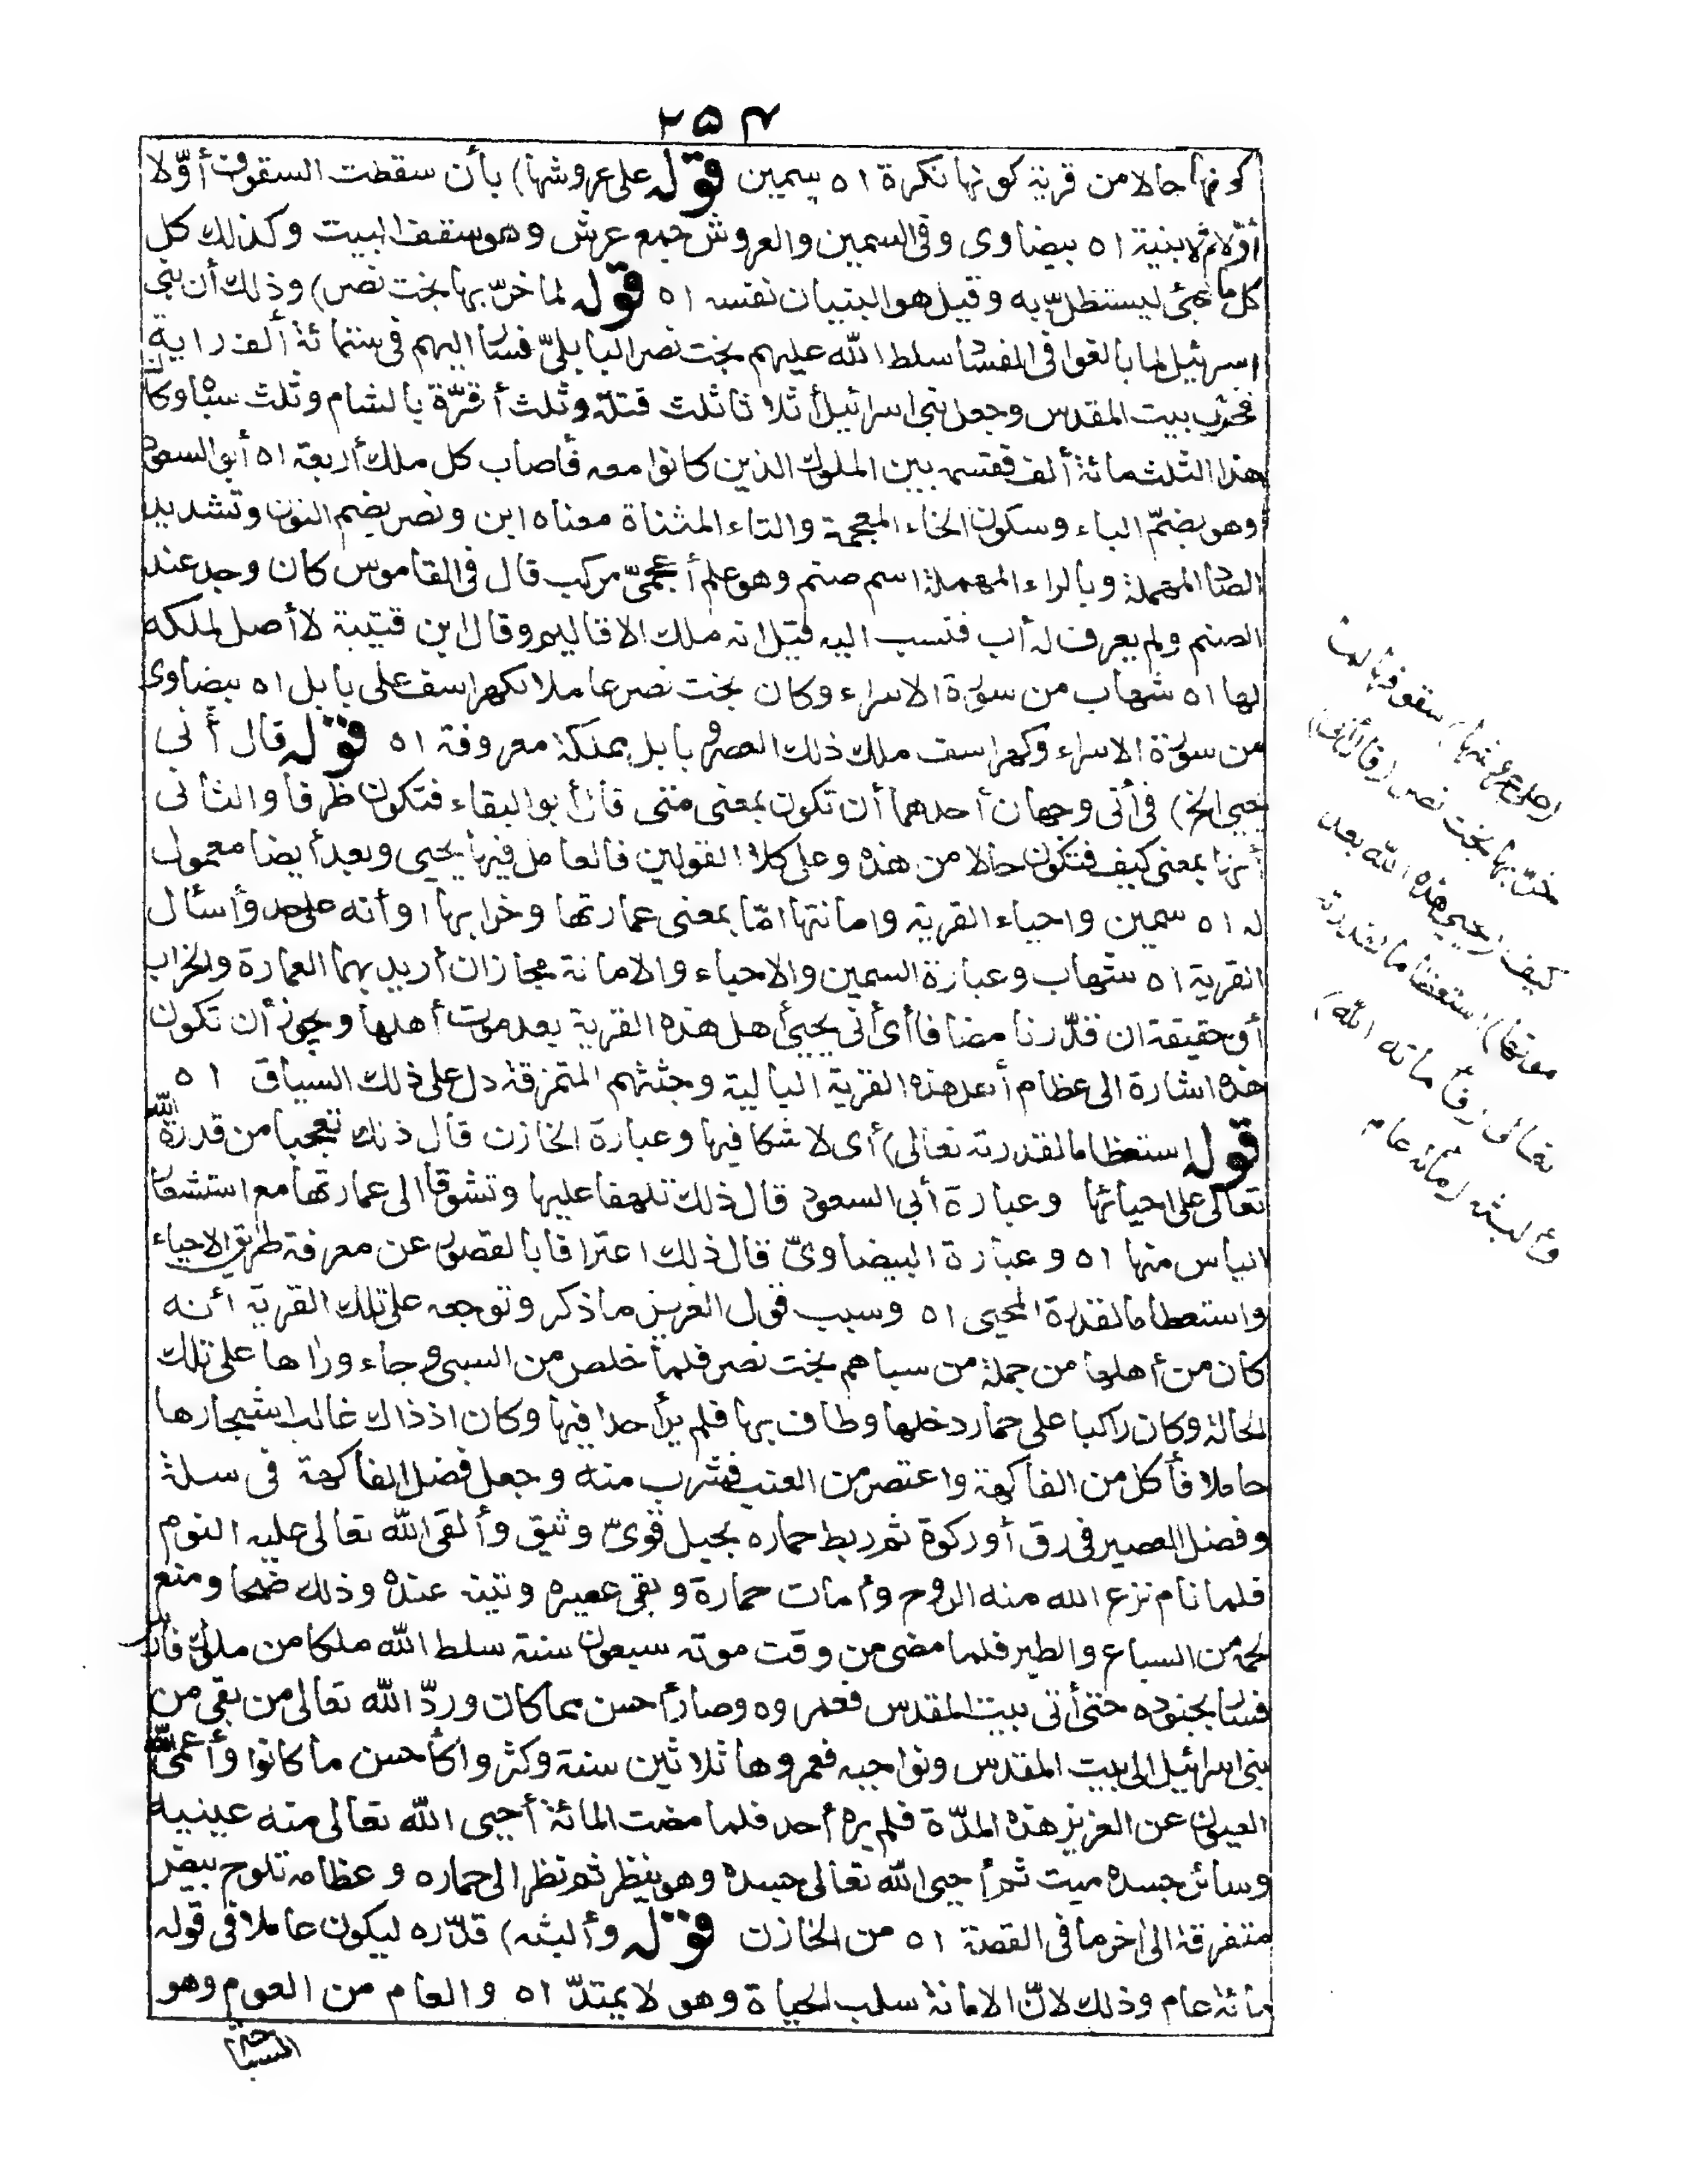 ٢٥٤
كونها حالا من قرية كونها نكرة اه سمين قوله على عروشها) بأن سقطت السقوف أوّلا
أوّلا ثم الابنية اه بيضاوى وفى السمين والعروش جمع عرش وهو سقف البيت وكذلك كل
كل ما هيئ ليستظلّ به وقيل هو البنيان نفسه اه قوله لما خرّبها بخت نصر) وذلك أن بنى
اسرئيل لما بالغوا فى الفساد سلط الله عليهم بخت نصر البابلىّ فسار اليهم فى ستمائة ألف راية
فخرّب بيت المقدس وجعل بنى اسرائيل أثلاثا ثلث قتله وثلث أقرّة بالشام وثلث سباه وكان
هذا الثلث مائة ألف فقسمه بين الملوك الذين كانوا معه فأصاب كل ملك أربعة اه أبو السعود
وهو بضمّ الباء وسكون الخاء المعجمة والتاء المثناة معناه ابن ونصر بضم النون وتشديد
الصاد المهملة وبالراء المهملة اسم صنم وهو علم أعجمىّ مركب قال فى القاموس كان وجد عند
الصنم ولم يعرف له أب فنسب اليه قيل انه ملك الاقاليم وقال ابن قتيبة لا أصل لملكه
لها اه شهاب من سورة الاسراء وكان بخت نصر عاملا لكهراسف على بابل اه بيضاوى
من سورة الاسراء وكهراسف ملك ذلك العصر وبابل بمملكة معروفة اه قوله قال أنى
يحيى الخ) فى أنى وجهان أحدهما أن تكون بمعنى متى قال أبو البقاء فتكون ظرفا والثانى
أنها بمعنى كيف فتكون حالا من هذه وعلى كلا القولين فالعامل فيها يحيى وبعد أيضا معمول
له اه سمين واحياء القرية واماتتها امّا بمعنى عمارتها وخرابها اوأنه على حد وأسأل
القرية اه شهاب وعبارة السمين والاحياء والاماتة مجازان أريد بهما العمارة والخراب
أو حقيقة ان قدّرنا مضافا أى أنى يحيى أهل هذه القرية بعد موت أهلها ويجوز أن تكون
هذه اشارة الى عظام أهل هذه القرية البالية وجثثهم المتمزقة دل على ذلك السياق اه
قوله استعظاما لقدرته تعالى) أى لا شكا فيها وعبارة الخازن قال ذلك تعجبا من قدرة الله
تعالى على احيائها وعبارة أبى السعود قال ذلك تلهفا عليها وتشوقا الى عمارتها مع استشعار
الياس منها اه وعبارة البيضاوىّ قال ذلك اعترافا بالقصور عن معرفة طريق الاحياء
واستعظاما لقدرة المحيى اه وسبب قول العزيز ما ذكر وتوجعه على تلك القرية أنه
كان من أهلها من جملة من سباهم بخت نصر فلما خلص من السبى وجاء ورآها على تلك
الحالة وكان راكبا على حمار دخلها وطاف بها فلم ير أحدا فيها وكان اذ ذاك غالب اشجارها
حاملا فأكل من الفاكهة واعتصر من العنب فشرب منه وجعل فضل الفاكهة فى سلة
وفضل العصير فى زق أو ركوة ثم ربط حماره بحبل قوىّ وثيق وألقى الله تعالى عليه النوم
فلما نام نزع الله منه الروح وأمات حماره وبقى عصيره وتينه عنده وذلك ضحا ومنع
لحمه من السباع والطير فلما مضى من وقت موته سبعون سنة سلط الله ملكا من ملوك فارس
فسار بجنوده حتى أتى بيت المقدس فعمروه وصار أحسن مما كان وردّ الله تعالى من بقى من
بنى اسرائيل الى بيت المقدس ونواحيه فعمروها ثلاثين سنة وكثروا كأحسن ما كانوا وأعمى الله
العيون عن العزيز هذه المدّة فلم يره أحد فلما مضت المائة أحيى الله تعالى منه عينيه
وسائر جسده ميت ثم أحيى الله تعالى جسده وهو ينظر ثم نظر الى حماره وعظامه تلوح بيض
متفرقة الى اخر ما فى القصة اه من الخازن قوله وألبثه) قدّره ليكون عاملا فى قوله
مائة عام وذلك لانّ الاماتة سلب الحياة وهو لا يمتدّ اه والعام من العوم وهو
السباحة
(على عروشها) سقوفها لما
خرّبها بخت نصر (قال أنى)
كيف (يحيى هذه الله بعد
موتها) استعظاما لقدرته
تعالى (فأماته الله)
وألبثه (مائة عام